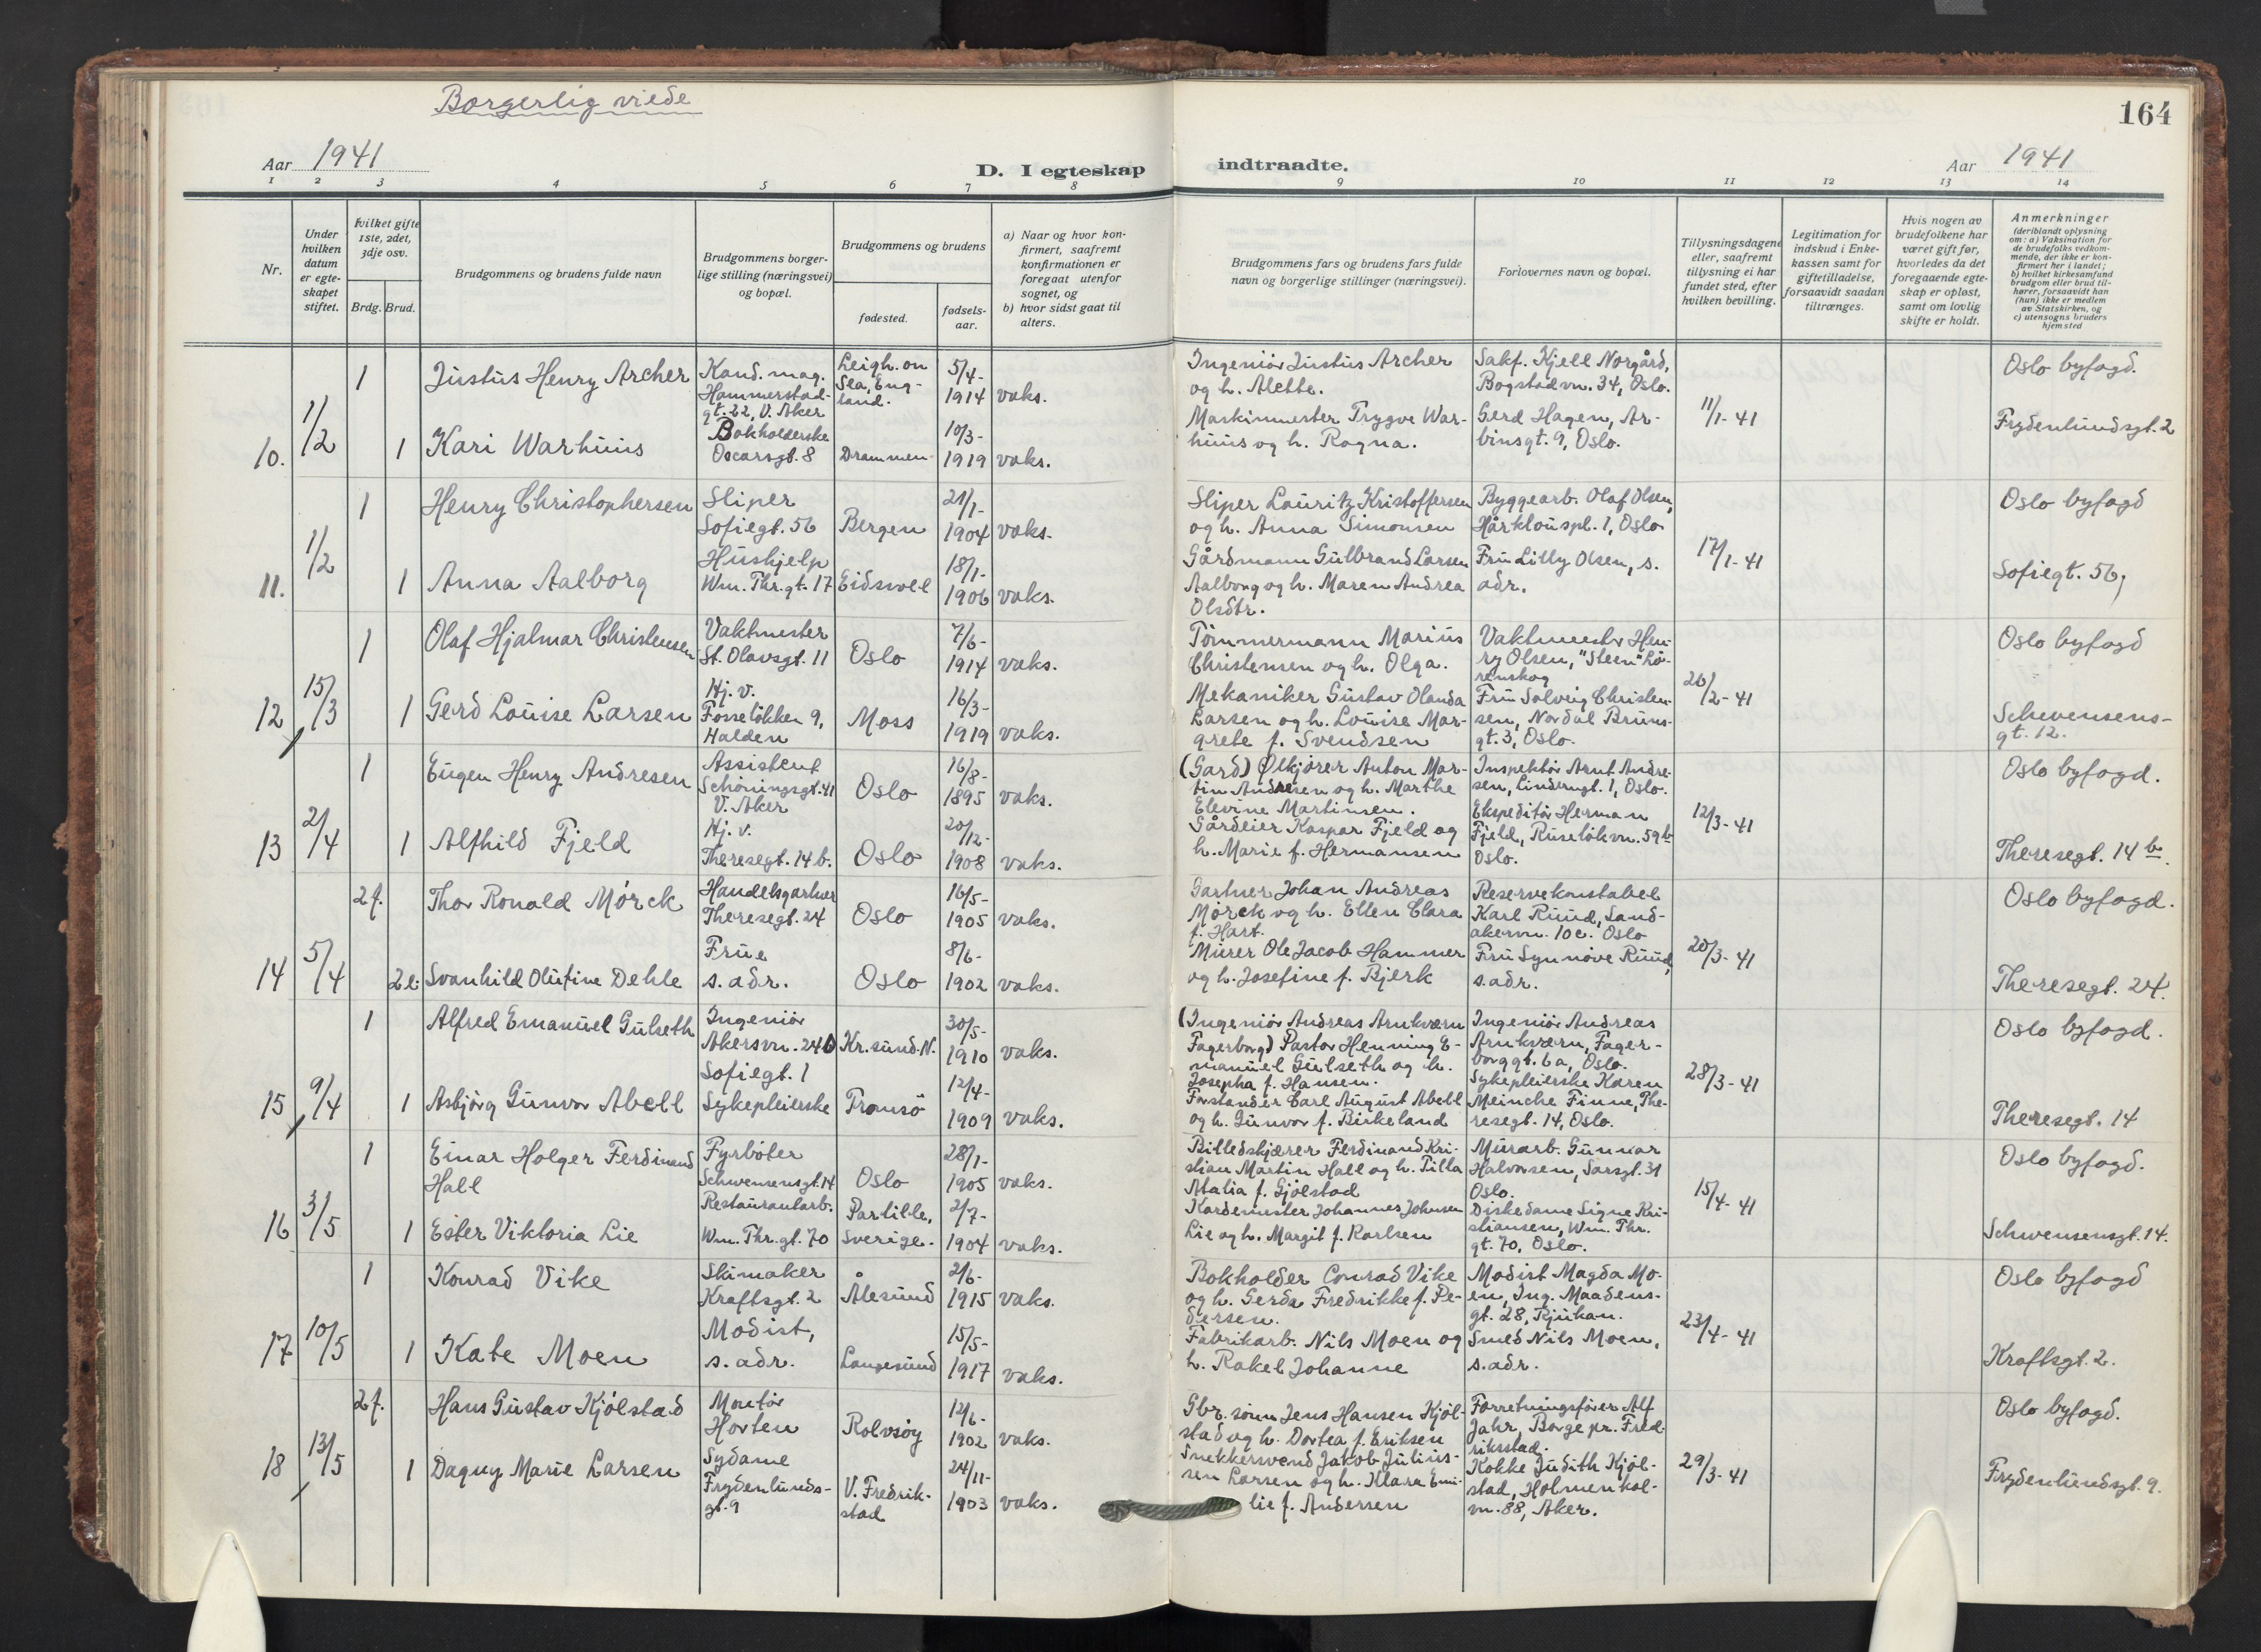 Borgerlig viede
164
Aar 1941
D. I egteskap indtraadte.
Aar 1941
1 2 3 4 5 6 7 8 9 10 11 12 13 14
Nr.
Under hvilken datum er egte-skapet stiftet.
Hvilket gifte 1ste, 2det, 3dje osv.
Brdg. Brud.
Brudgommens og brudens fulde navn
Brudgommens borger-lige stilling (næringsvei) og bopæl.
Brudgommens og brudens
fødested.
fødsels-aar.
a) Naar og hvor kon-firmert, saafremt konfirmationen er foregaat utenfor sognet, og
b) hvor sidst gaat til alters.
Brudgommens fars og brudens fars fulde navn og borgerlige stillinger (næringsvei).
Forlovernes navn og bopæl.
Tillysningsdagene eller, saafremt tillysning ei har fundet sted, efter hvilken bevilling.
Legitimation for indskud i Enke-kassen samt for giftetilladelse, forsaavidt saadan tiltrænges.
Hvis nogen av brudefolkene har været gift før, hvorledes da det foregaaende egte-skap er opløst, samt om lovlig skifte er holdt.
Anmerkninger (deriblandt oplysning om: a) Vaksination for de brudefolks vedkom-mende, der ikke er kon-firmert her i landet; b) hvilket kirkesamfund brudgom eller brud til-hører, forsaavidt han (hun) ikke er medlem av Statskirken, og c) utensogns bruders hjemsted
10. 1/2
1 Justus Henry Archer
Kand. mag. Hammerstad-gt. 22, V. Aker
Leigh. on Sea, Eng-land.
5/4-1914 vaks.
Ingeniør Justus Archer og h. Alette.
Sakf. Kjell Norgård, Bogstadvn. 34, Oslo.
11/1-41
Oslo byfogd.
1 Kari Warhuus
Bokholderske Oscarsgt. 8
Drammen
10/3-1919 vaks.
Maskinmester Trygve War-huus og h. Ragna.
Gerd Hagen, Ar-binsgt. 9, Oslo.
Frydenlundsgt. 2
11. 1/2
1 Henry Christophersen
Sliper Sofiegt. 56
Bergen
21/1-1904 vaks.
Sliper Lauritz Kristoffersen og h. Anna Simonsen
Byggearb. Olaf Olsen, Hårklouspl. 1, Oslo
17/1-41
Oslo byfogd
1 Anna Aalborg
Hushjelp Wm. Thr.gt. 17
Eidsvoll
18/1-1906 vaks.
Gårdmann Gulbrand Larsen Aalborg og h. Maren Andrea Olsdtr.
Fru Lilly Olsen, s. adr.
Sofiegt. 56,
12 15/3
1 Olaf Hjalmar Christensen
Vaktmester St. Olavsgt. 11
Oslo
7/6-1914 vaks.
Tømmermann Marius Christensen og h. Olga.
Vaktmester Hen-ry Olsen, "Steen" Lø-renskog
26/2-41
Oslo byfogd
1 Gerd Louise Larsen
Hj. v. Fosseløkken 9, Halden
Moss
16/3-1919 vaks.
Mekaniker Gustav Olanda Larsen og h. Louise Mar-grete f. Svendsen
Fru Solveig Christen-sen, Nordal Bruns-gt. 3, Oslo.
Schwensens-gt. 12.
13 2/4
1 Eugen Henry Andresen
Assistent Schöningsgt. 41 V. Aker
Oslo
16/8-1895 vaks.
(Gard) Ølkjører Anton Mar-tin Andresen og h. Marthe Elevine Martinsen.
Inspektør Arnt Andre-sen, Linderngt. 1, Oslo.
12/3-41
Oslo byfogd.
1 Alfhild Fjeld
Hj. v. Theresegt. 14 b.
Oslo
20/12-1908 vaks.
Gårdeier Kaspar Fjeld og h. Marie f. Hermansen
Ekspeditør Herman Fjeld, Ruseløkvn. 59 b Oslo.
Theresegt. 14 b.
14 5/4
2 f. Thor Ronald Mørck
Handelsgartner Theresegt. 24
Oslo
16/5-1905 vaks.
Gartner Johan Andreas Mørck og h. Ellen Clara f. Hart.
Reservekonstabel Karl Ruud, Sand-akervn. 10 c. Oslo
20/3-41
Oslo byfogd.
2 e. Svanhild Olufine Dehle
Frue s. adr.
Oslo
8/6-1902 vaks.
Murer Ole Jacob Hammer og h. Josefine f. Bjerk
Fru Synnøve Ruud, s. adr.
Theresegt. 24.
15 9/4
1 Alfred Emanuel Gulseth
Ingeniør Akersvn. 24 b
Kr.sund. N.
30/5-1910 vaks.
(Ingeniør Andreas Arnkværn Fagerborg) Pastor Henning E-manuel Gulseth og h. Josepha f. Hansen.
Ingeniør Andreas Arnkværn, Fager-borggt. 6 a, Oslo.
28/3-41
Oslo byfogd.
1 Asbjørg Gunvor Abell
Sofiegt. 1 Sykepleierske
Tromsø
12/4-1909 vaks.
Forstander Carl August Abell og h. Gunvor f. Birkeland
Sykepleierske Karen Meinche Finne, The-resegt. 14, Oslo.
Theresegt. 14
16 3/5
1 Einar Holger Ferdinand Hall
Fyrbøter Schwensensgt. 14
Oslo
28/1-1905 vaks.
Billedskjærer Ferdinand Kri-stian Martin Hall og h. Tilla Atalia f. Gjølstad
Murarb. Gunnar Halvorsen, Sarsgt. 31 Oslo.
15/4-41
Oslo byfogd.
1 Ester Viktoria Lie
Restaurantarb. Wm. Thr.gt. 70
Partille, Sverige.
2/7-1904 vaks.
Kardemester Johannes Johnsen Lie og h. Margit f. Karlsen
Diskedame Signe Kri-stiansen, Wm. Thr. gt. 70, Oslo.
Schwensensgt. 14.
17 10/5
1 Konrad Vike
Skimaker Kraftsgt. 2
Ålesund
2/6-1915 vaks.
Bokholder Conrad Vike og h. Gerda Fredrikke f. Pe-dersen.
Modist Magda Mo-en, Ing. Maadens-gt. 28, Rjukan.
23/4-41
Oslo byfogd
1 Kate Moen
Modist, s. adr.
Langesund
15/5-1917 vaks.
Fabrikarb. Nils Moen og h. Rakel Johanne
Smed Nils Moen, s. adr.
Kraftsgt. 2.
18 13/5
2 f. Hans Gustav Kjølstad
Montør Horten
Rolvsøy
12/6-1902 vaks.
Gbr. sønn Jens Hansen Kjøl-stad og h. Dortea f. Eriksen
Forretningsfører Alf Jahr, Borge pr. Fred-riksstad.
29/3-41
Oslo byfogd.
1 Dagny Marie Larsen
Sydame Frydenlunds-gt. 9
V. Fredrik-stad
24/11-1903 vaks.
Snekkersvend Jakob Julius-sen Larsen og h. Klara Emi-lie f. Andersen
Kokke Judith Kjøl-stad, Holmenkol-vn. 88, Aker.
Frydenlundsgt. 9.